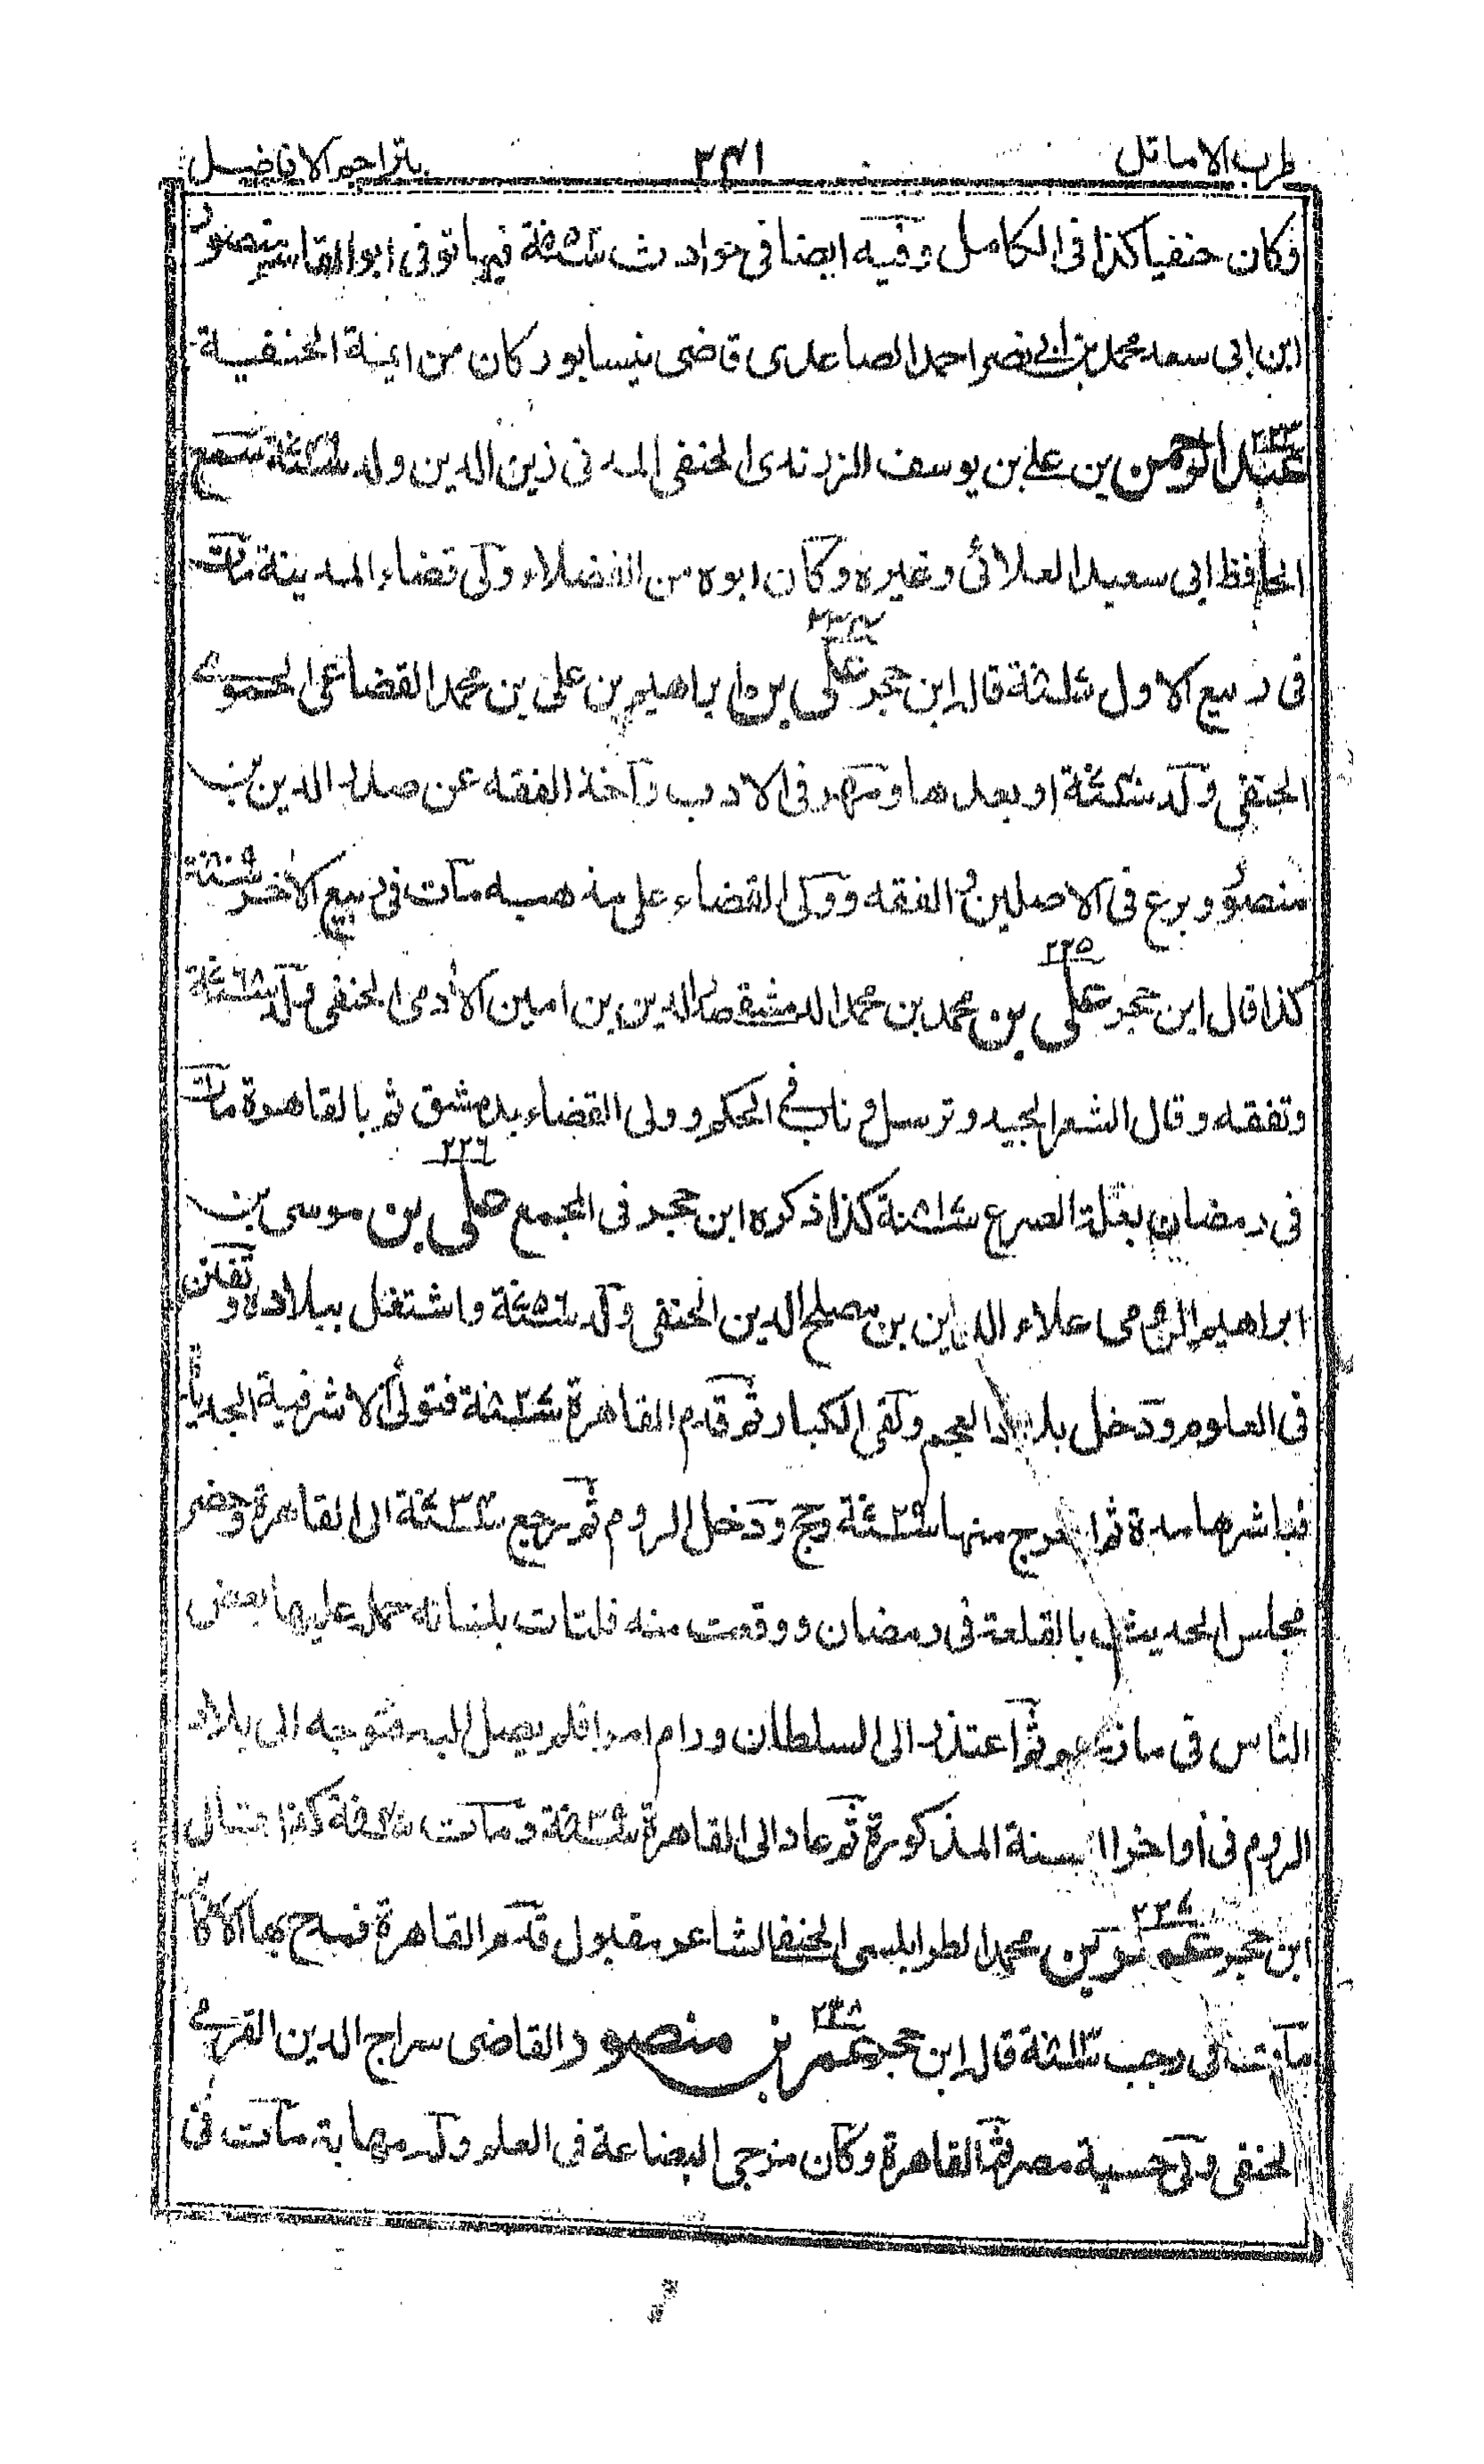 طرب الاماثل ٢٤١ بتراجم الافاضل
وكان حنفيا كذا فى الكامل وفيه ايضا فى حوادث ٥٥٢ سنة فيها توفى ابو القاسم منصور
ابن ابى سعد محمد بن ابى نصر احمد الصاعدى قاضى نيسابور كان من ايمة الحنفية
٢٣٣ عبد الرحمن بن على بن يوسف الزرندى الحنفى المدنى زين الدين ولد سنة سمع
الحافظ ابى سعيد العلائى وغيره وكان ابوه من الفضلاء ولى قضاء المدينة مات
فى ربيع الاول سنة قاله ابن حجر ٢٣٤ على بن ابراهيم بن على بن محمد القضاعى الحموى
الحنفى ولد سنة او بعدها ومهر فى الادب واخذ الفقه عن صدر الدين بن
منصور وبرع فى الاصلين والفقه وولى القضاء على مذهبه مات فى ربيع الاخر سنة ٨٠٩
كذا قال ابن حجر ٢٣٥ على بن محمد بن محمد الدمشقى صدر الدين بن امين الادمى الحنفى ولد سنة ٧٦٨
وتفقه وقال الشعر الجيد وترسل وناب فى الحكم وولى القضاء بدمشق ثم بالقاهرة مات
فى رمضان بعلة الصرع سنة كذا ذكره ابن حجر فى المجمع ٢٣٦ على بن موسى بن
ابراهيم الرومى علاء الدين بن مصلح الدين الحنفى ولد سنة ٧٥٦ واشتغل ببلاده وتفنن
فى العلوم ودخل بلاد العجم ولقى الكبار ثم قدم القاهرة سنة فتولى الاشرفية الجديدة
فباشرها مدة ثم اخرج منها سنة ٨٢٩ وحج ودخل الروم ثم رجع سنة الى القاهرة وحضر
مجلس الحديث بالقلعة فى رمضان ووقعت منه فلتات بلسانه حمل عليها بعض
الناس فى ثم اعتذر الى السلطان ورام امرا فلم يصل اليه فتوجه الى بلاد
الروم فى اواخر السنة المذكورة ثم عاد الى القاهرة سنة ٨٣٩ ومات سنة كذا قال
ابن حجر ٢٣٧ عمر بن محمد الطرابلسى الحنفى الشاعر مقبول قدم القاهرة فمدح بها الاكابر
مات فى رجب سنة قاله ابن حجر ٢٣٨ عمر بن منصور القاضى سراج الدين القرمى
الحنفى ولى حسبة مصر ثم القاهرة وكان مزجى البضاعة فى العلم وله مهابة مات فى